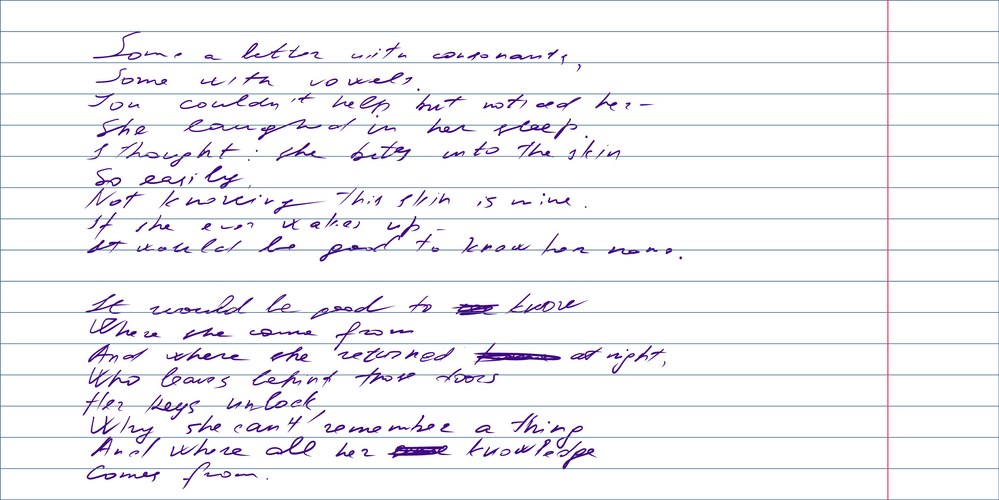 Some a letter with consonants,
Some with vowels.
You couldn't help but noticed her–
She laughed in her sleep.
I thought: she bites into the skin
So easily,
Not knowing this skin is mine.
If she ever wakes up –
It would be good to know her name.
It would be good to know
Where she came from
And where she returned at night,
Who leaves behind those doors
Her keys unlock,
Why she can't remember a thing
And where all her knowledge
Comes from.